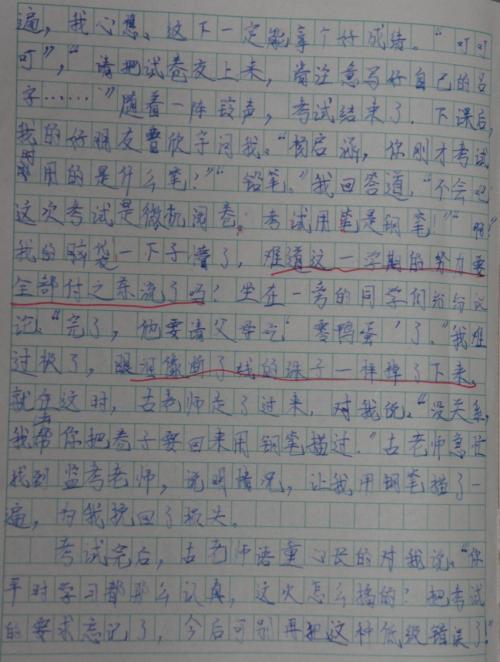 遍，我心想，这下一定能拿个好成绩。“叮叮
叮”，“请把试卷交上来，注意写好自己的名
字……”随着一阵铃声，考试结束了。下课后，
我的好朋友曹欣宇问我：“杨启涵，你刚才考试
时用的是什么笔？”“铅笔。”我回答道，“不会吧
这次考试是微机阅卷，考试用笔是钢笔！”“啊？”
我的脑袋一下子懵了，难道这一学期的努力要
全部付之东流了吗？坐在一旁的同学们纷纷议
论：“完了，他要请父母吃‘零鸭蛋’了。”我难
过极了，眼泪像断了线的珠子一样掉了下来。
就在这时，古老师走了过来，对我说：“没关系，
我去帮你把卷子要回来用钢笔描过。”古老师急忙
找到监考老师，说明情况，让我用钢笔描了一
遍，为我挽回了损失。
考试完后，古老师语重心长的对我说：“你
平时学习都那么认真，这次怎么搞的？把考试
的要求忘记了，今后可别再犯这种低级错误了！”